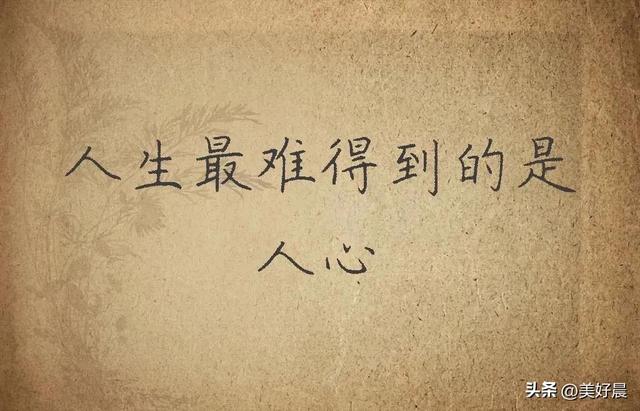 人生最难得到的是
人心
头条 @美好晨